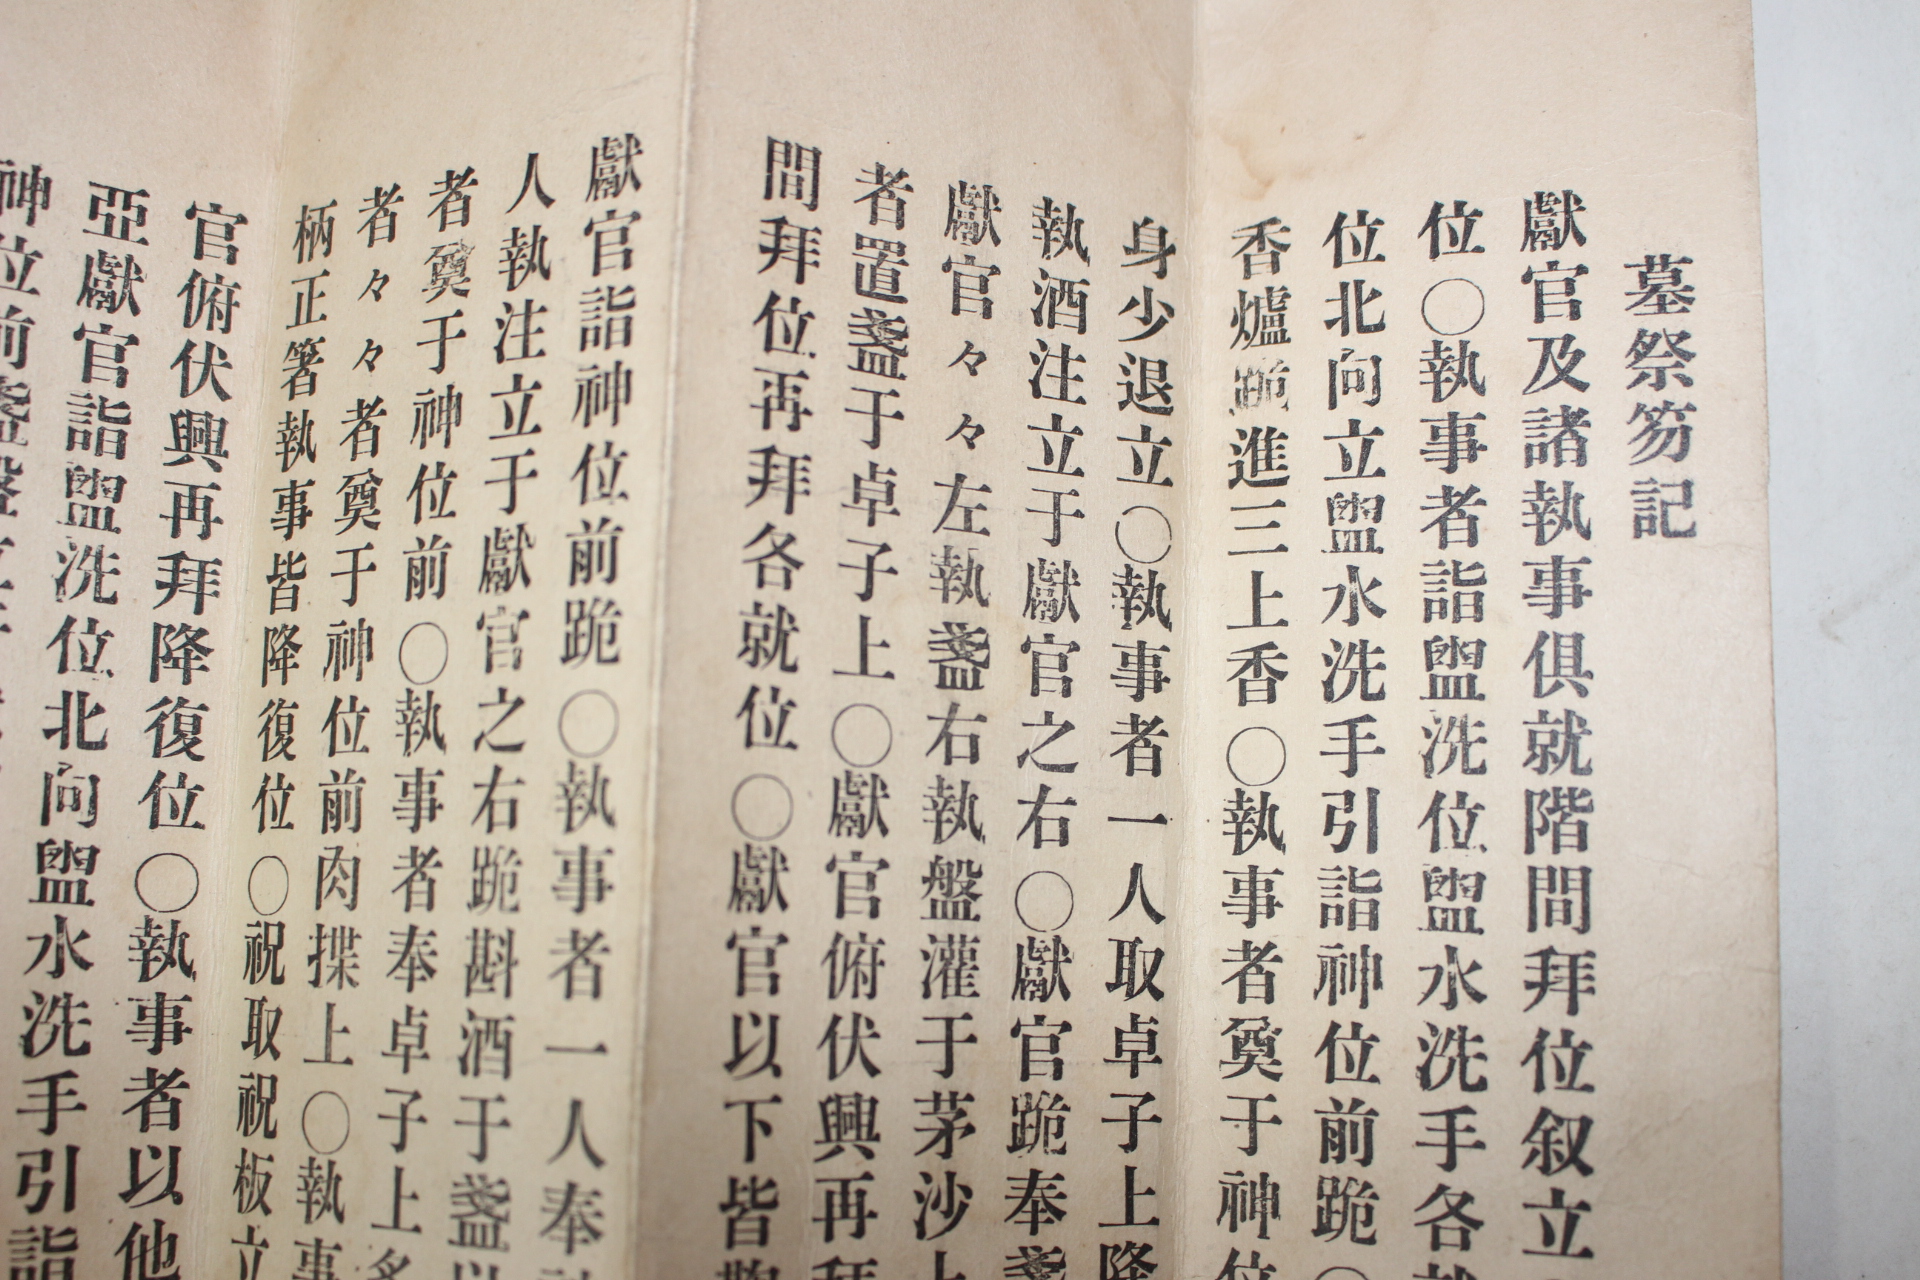 墓祭笏記
獻官及諸執事俱就階間拜位叙立
位○執事者詣盥洗位盥水洗手各就
位北向立盥水洗手引詣神位前跪○
香爐跪進三上香○執事者奠于神位
身少退立○執事者一人取卓子上降
執酒注立于獻官之右○獻官跪奉盞
獻官々々左執盞右執盤灌于茅沙上
者置盞于卓子上○獻官俯伏興再拜
間拜位再拜各就位○獻官以下皆鞠
獻官詣神位前跪○執事者一人奉
人執注立于獻官之右跪斟酒于盞以
者奠于神位前○執事者奉卓子上
者々々者奠于神位前肉揲上○執事
柄正箸執事皆降復位○祝取祝板立
官俯伏興再拜降復位○執事者以他
亞獻官詣盥洗位北向盥水洗手引詣
神位前盞盤